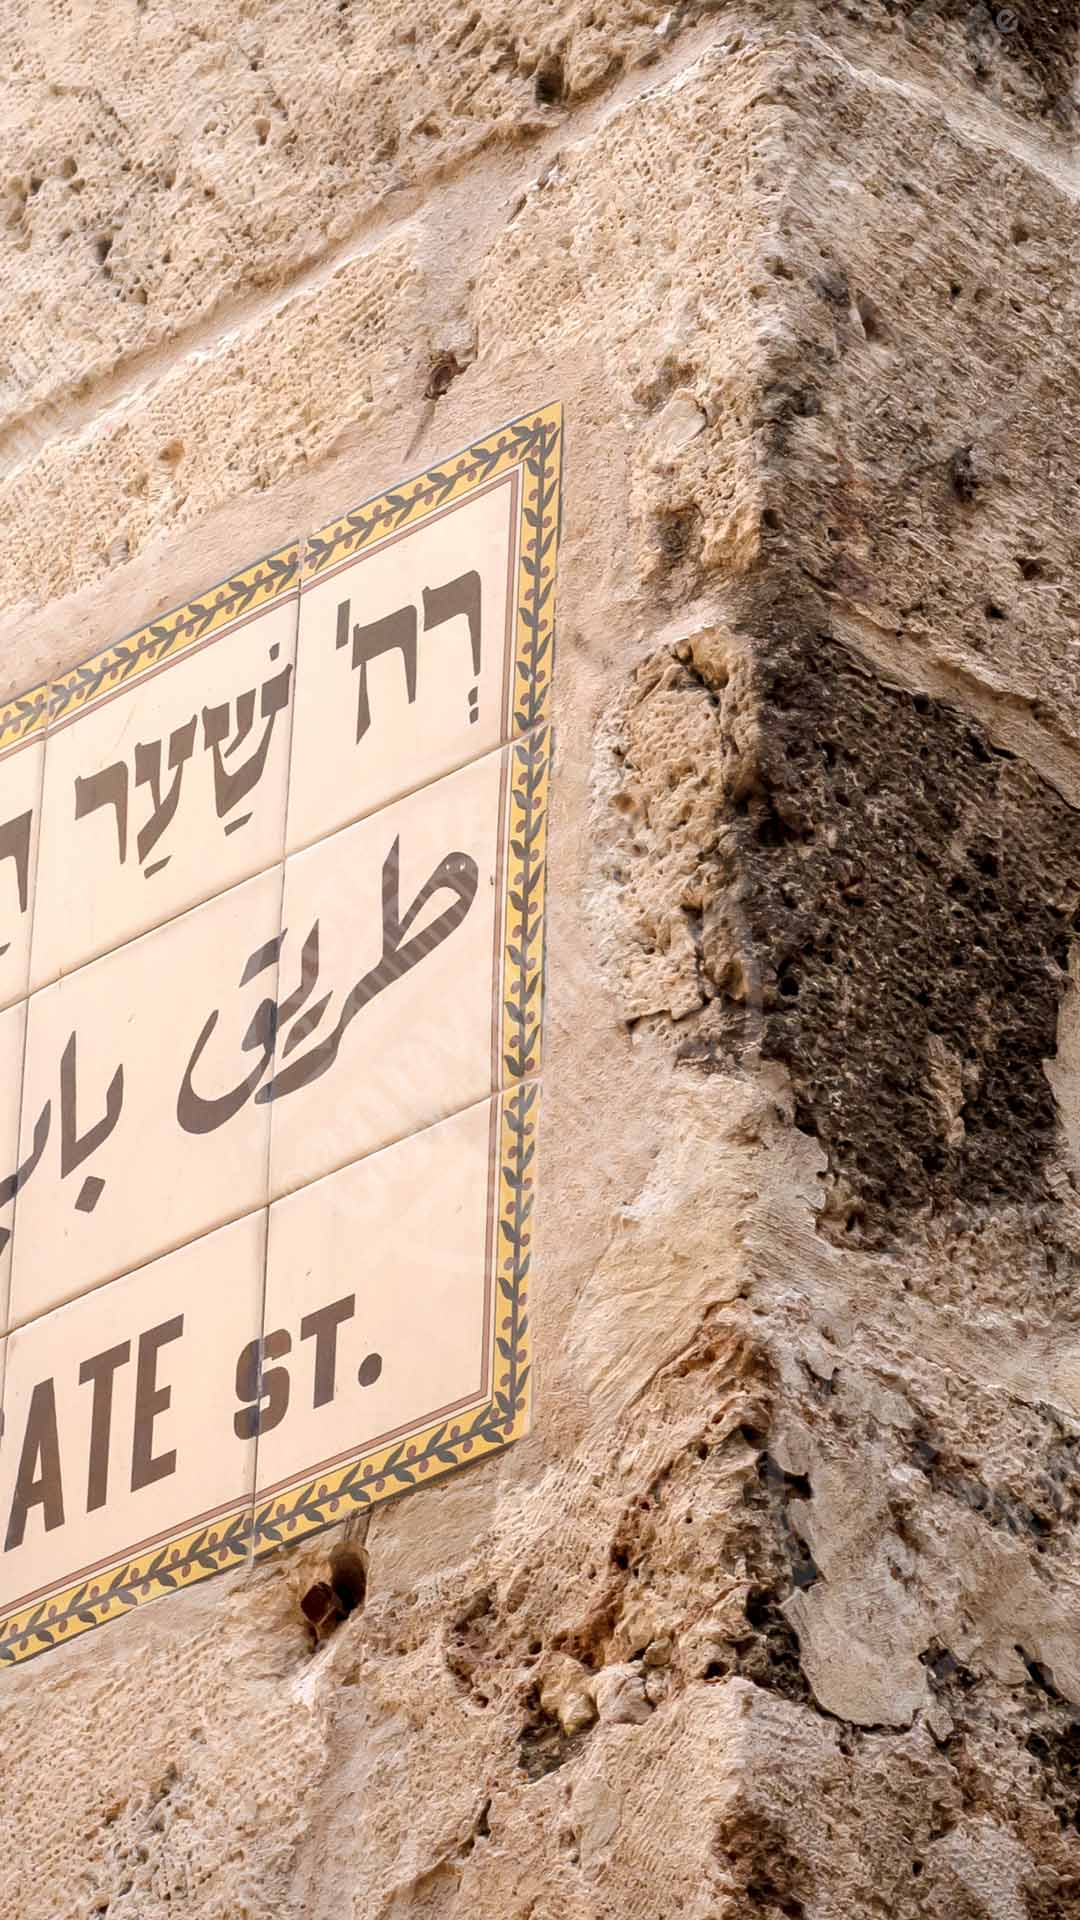 רְח' שַׁעַר
طريق با
ATE ST.